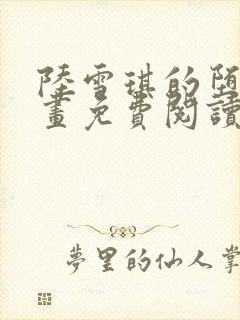 陸雪琪的堕
畫免費閱讀
夢里的仙人掌